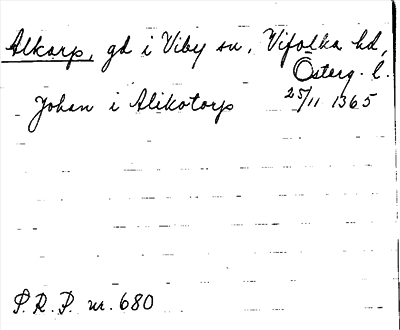 Alkarp, gd i Viby sn, Vifolka hd,
Österg. l.
Johan i Alikotorp 25/11 1365
P.R.P. nr. 680